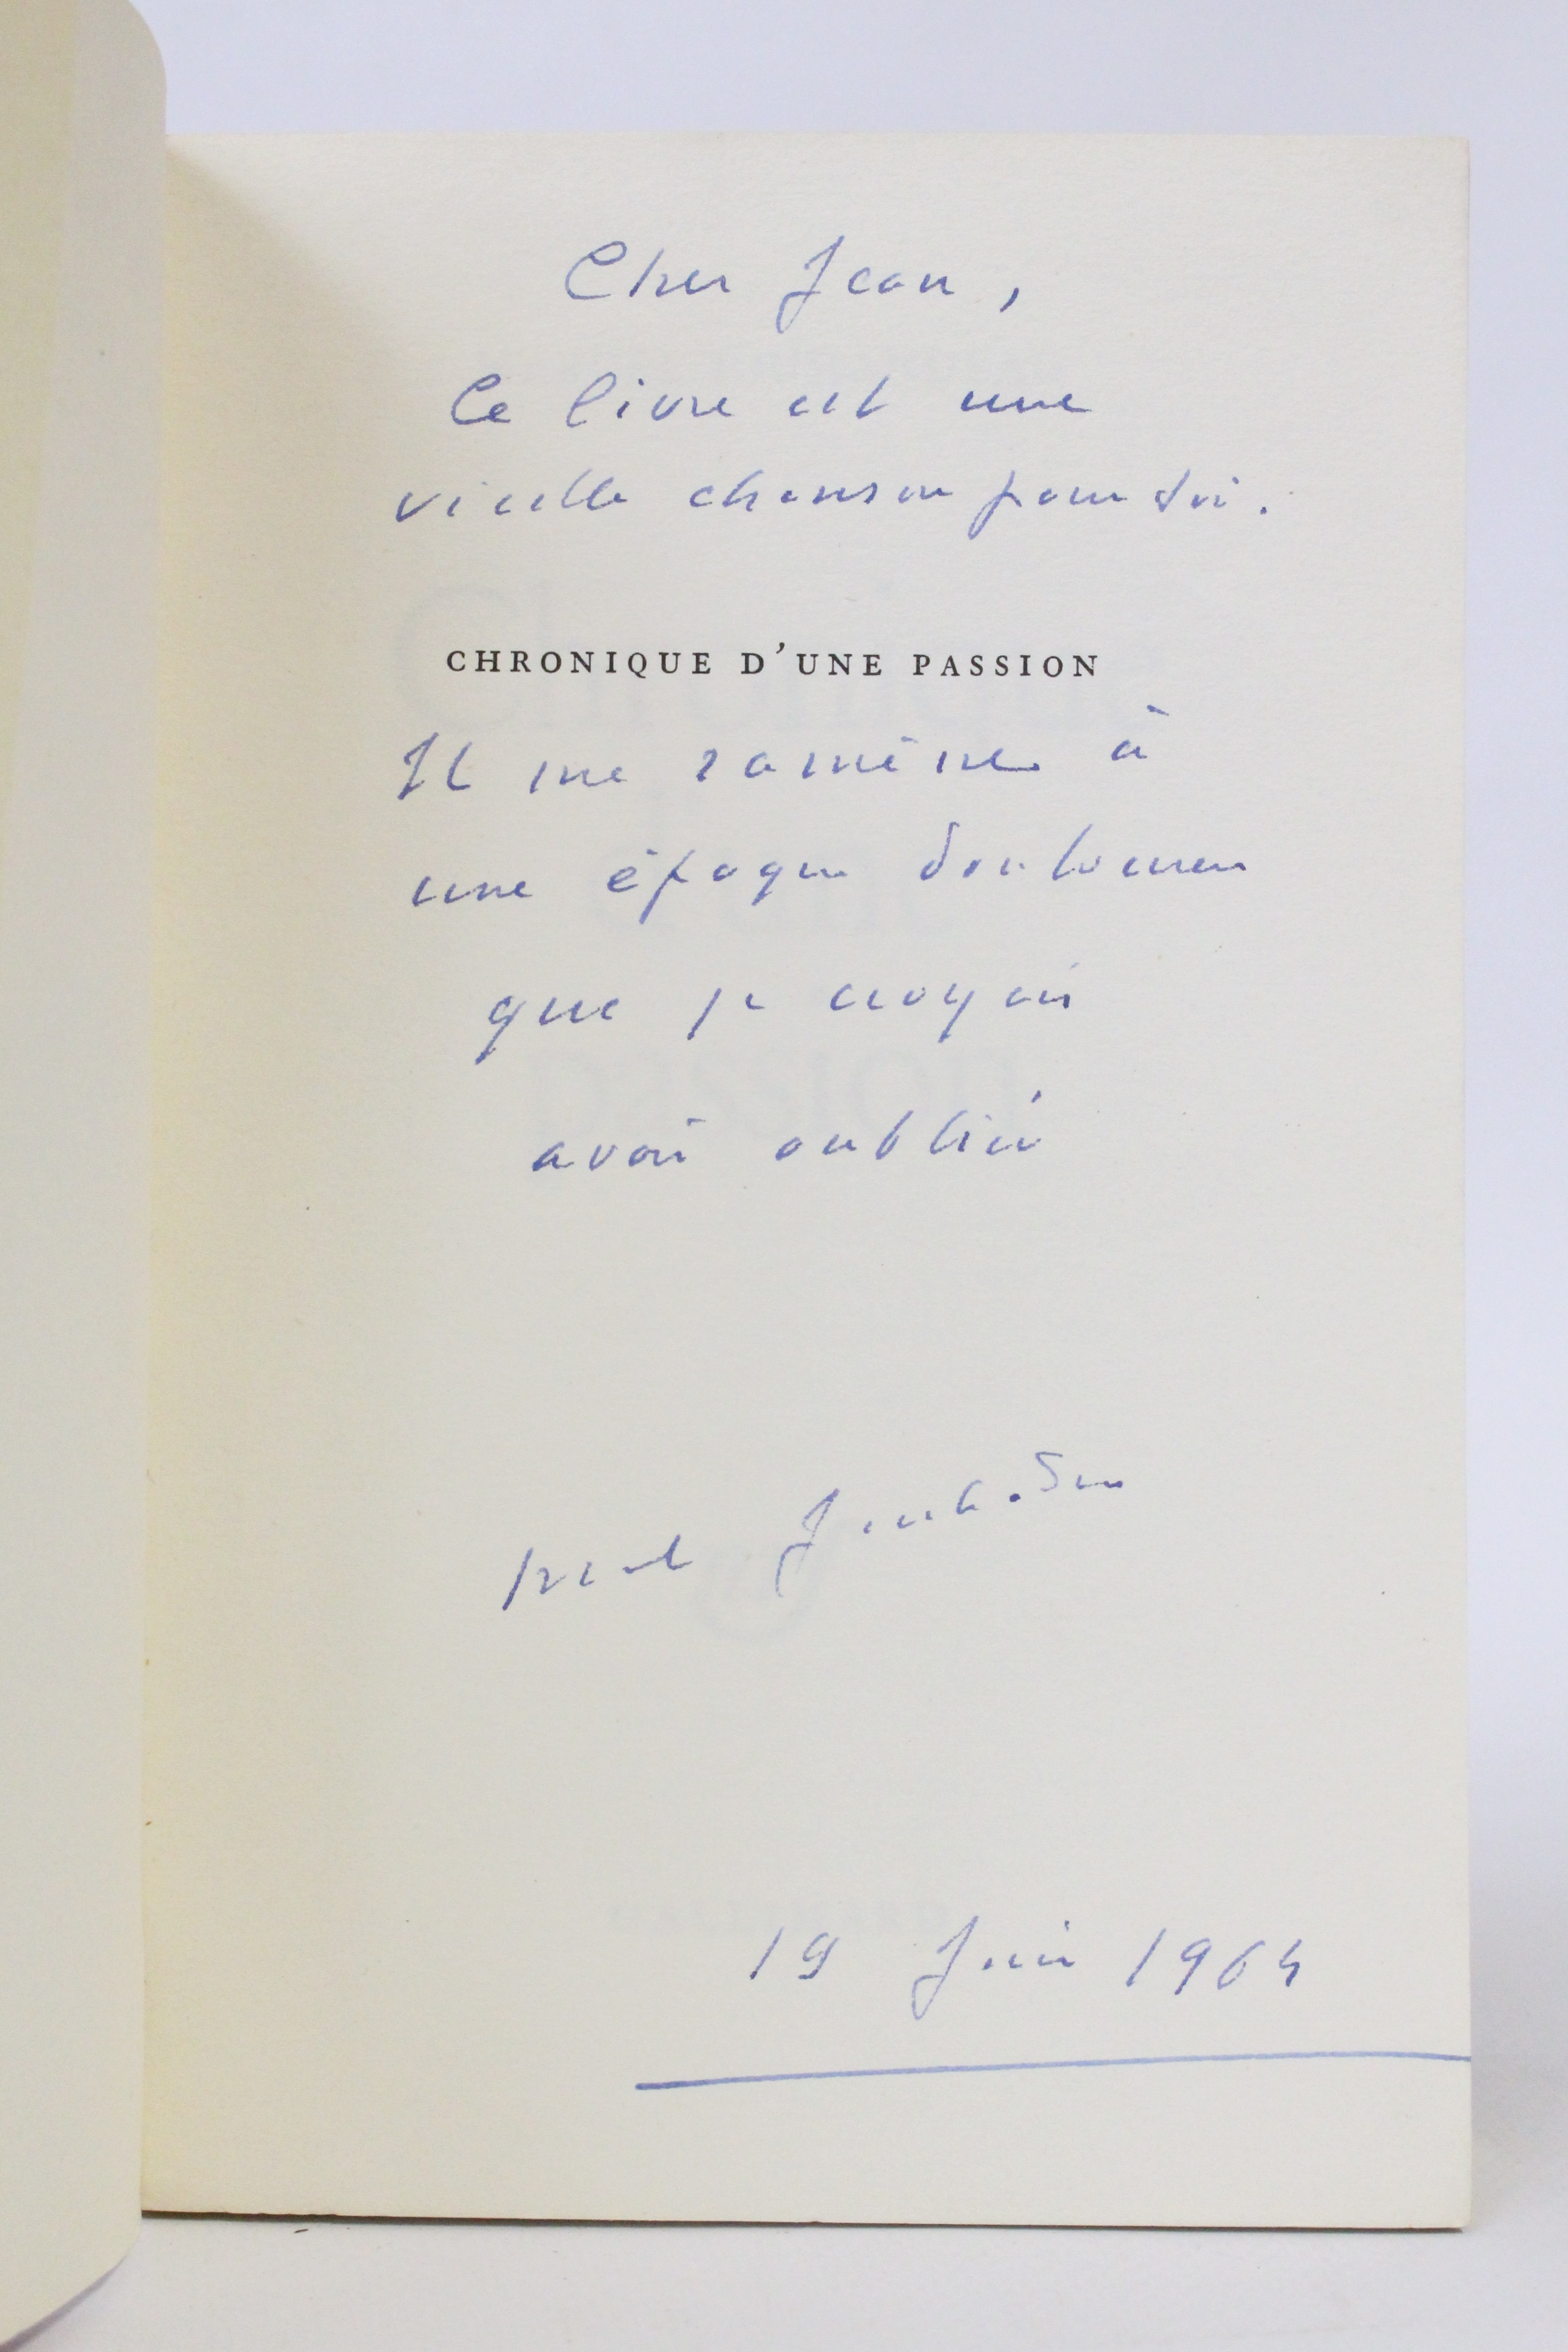 Cher Jean,
Ce livre est une
vieille chanson pour toi.
CHRONIQUE D'UNE PASSION
Il me ramène à
une époque douloureuse
que je croyais
avoir oubliée
Marcel Jouhandeau
19 Juin 1964